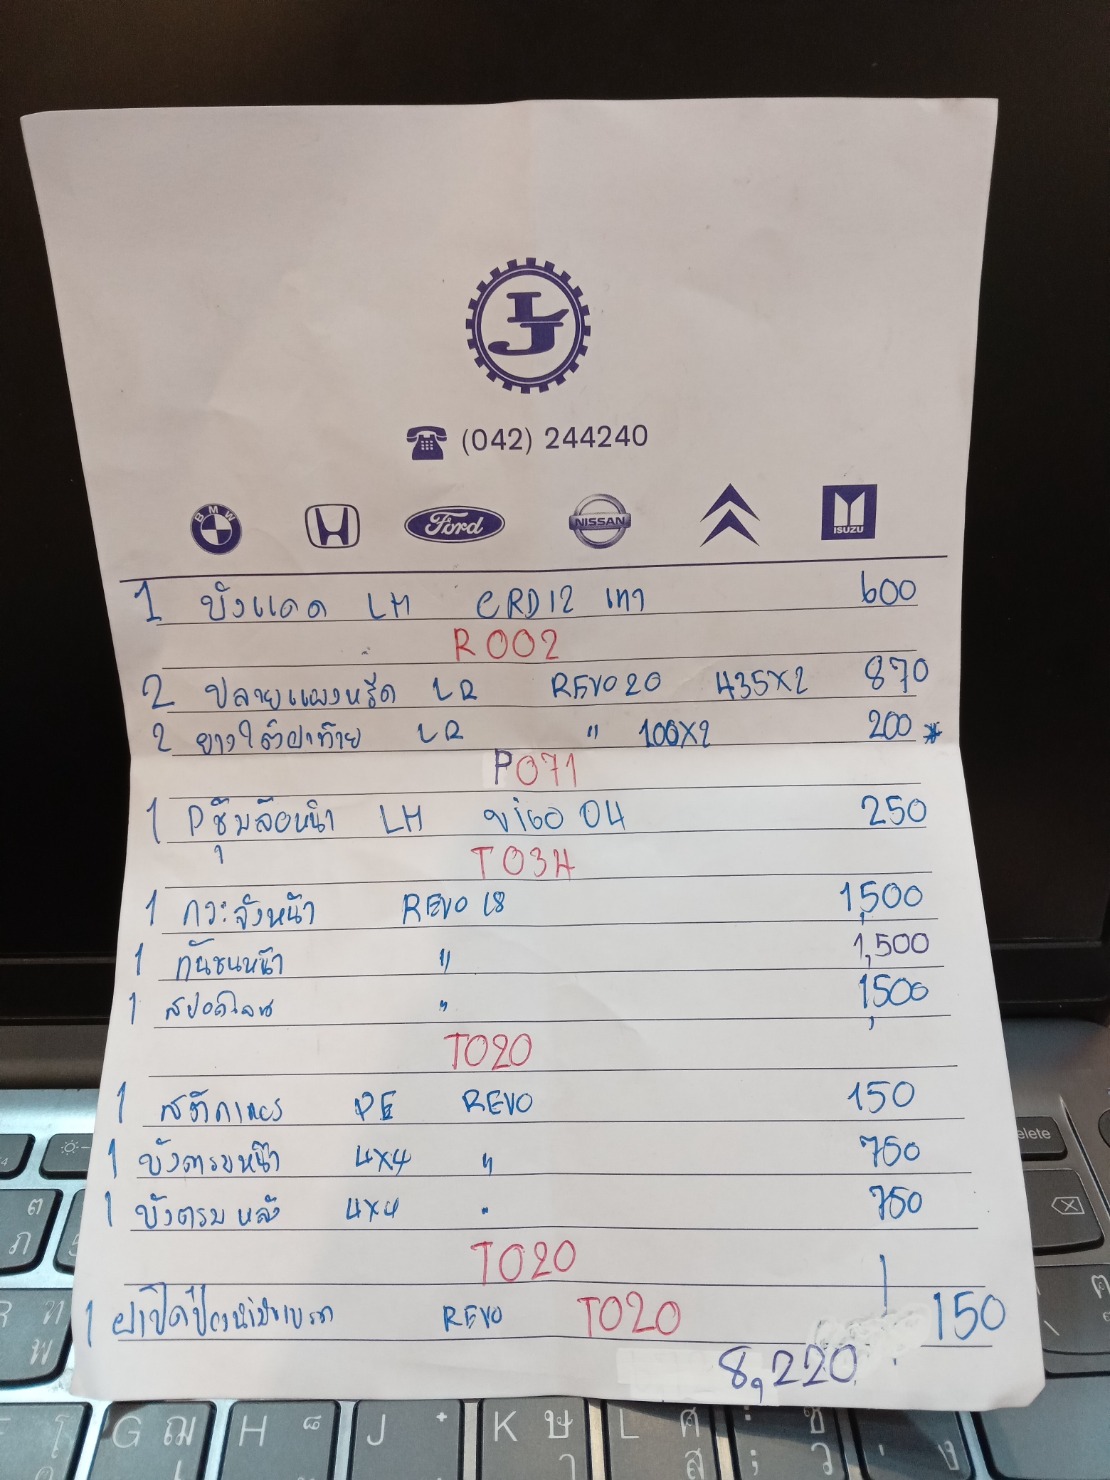 LJ
(042) 244240
BMW Ford NISSAN ISUZU
1 บังแดด LH CRD12 เทา 600
R002
2 ปลายแผงหรีด LR REVO20 435X2 870
2 ยางใต้ฝาท้าย LR " 100X2 200 *
P071
1 Pซุ้มล้อหน้า LH vigo 04 250
T03H
1 กระจังหน้า REVO 18 1,500
1 กันชนหน้า " 1,500
1 สปอตไลน 1,500
T020
1 สติกเกอร์ REVO 150
1 บังตรมหน้า 4X4 " 750
1 บังตรม หลัง 4X4 " 750
T020
1 REVO T020 150
8,220
elete
ต
ภ
ท
พ
G ฌ H J K ษ L ศ ส ซ ว ง